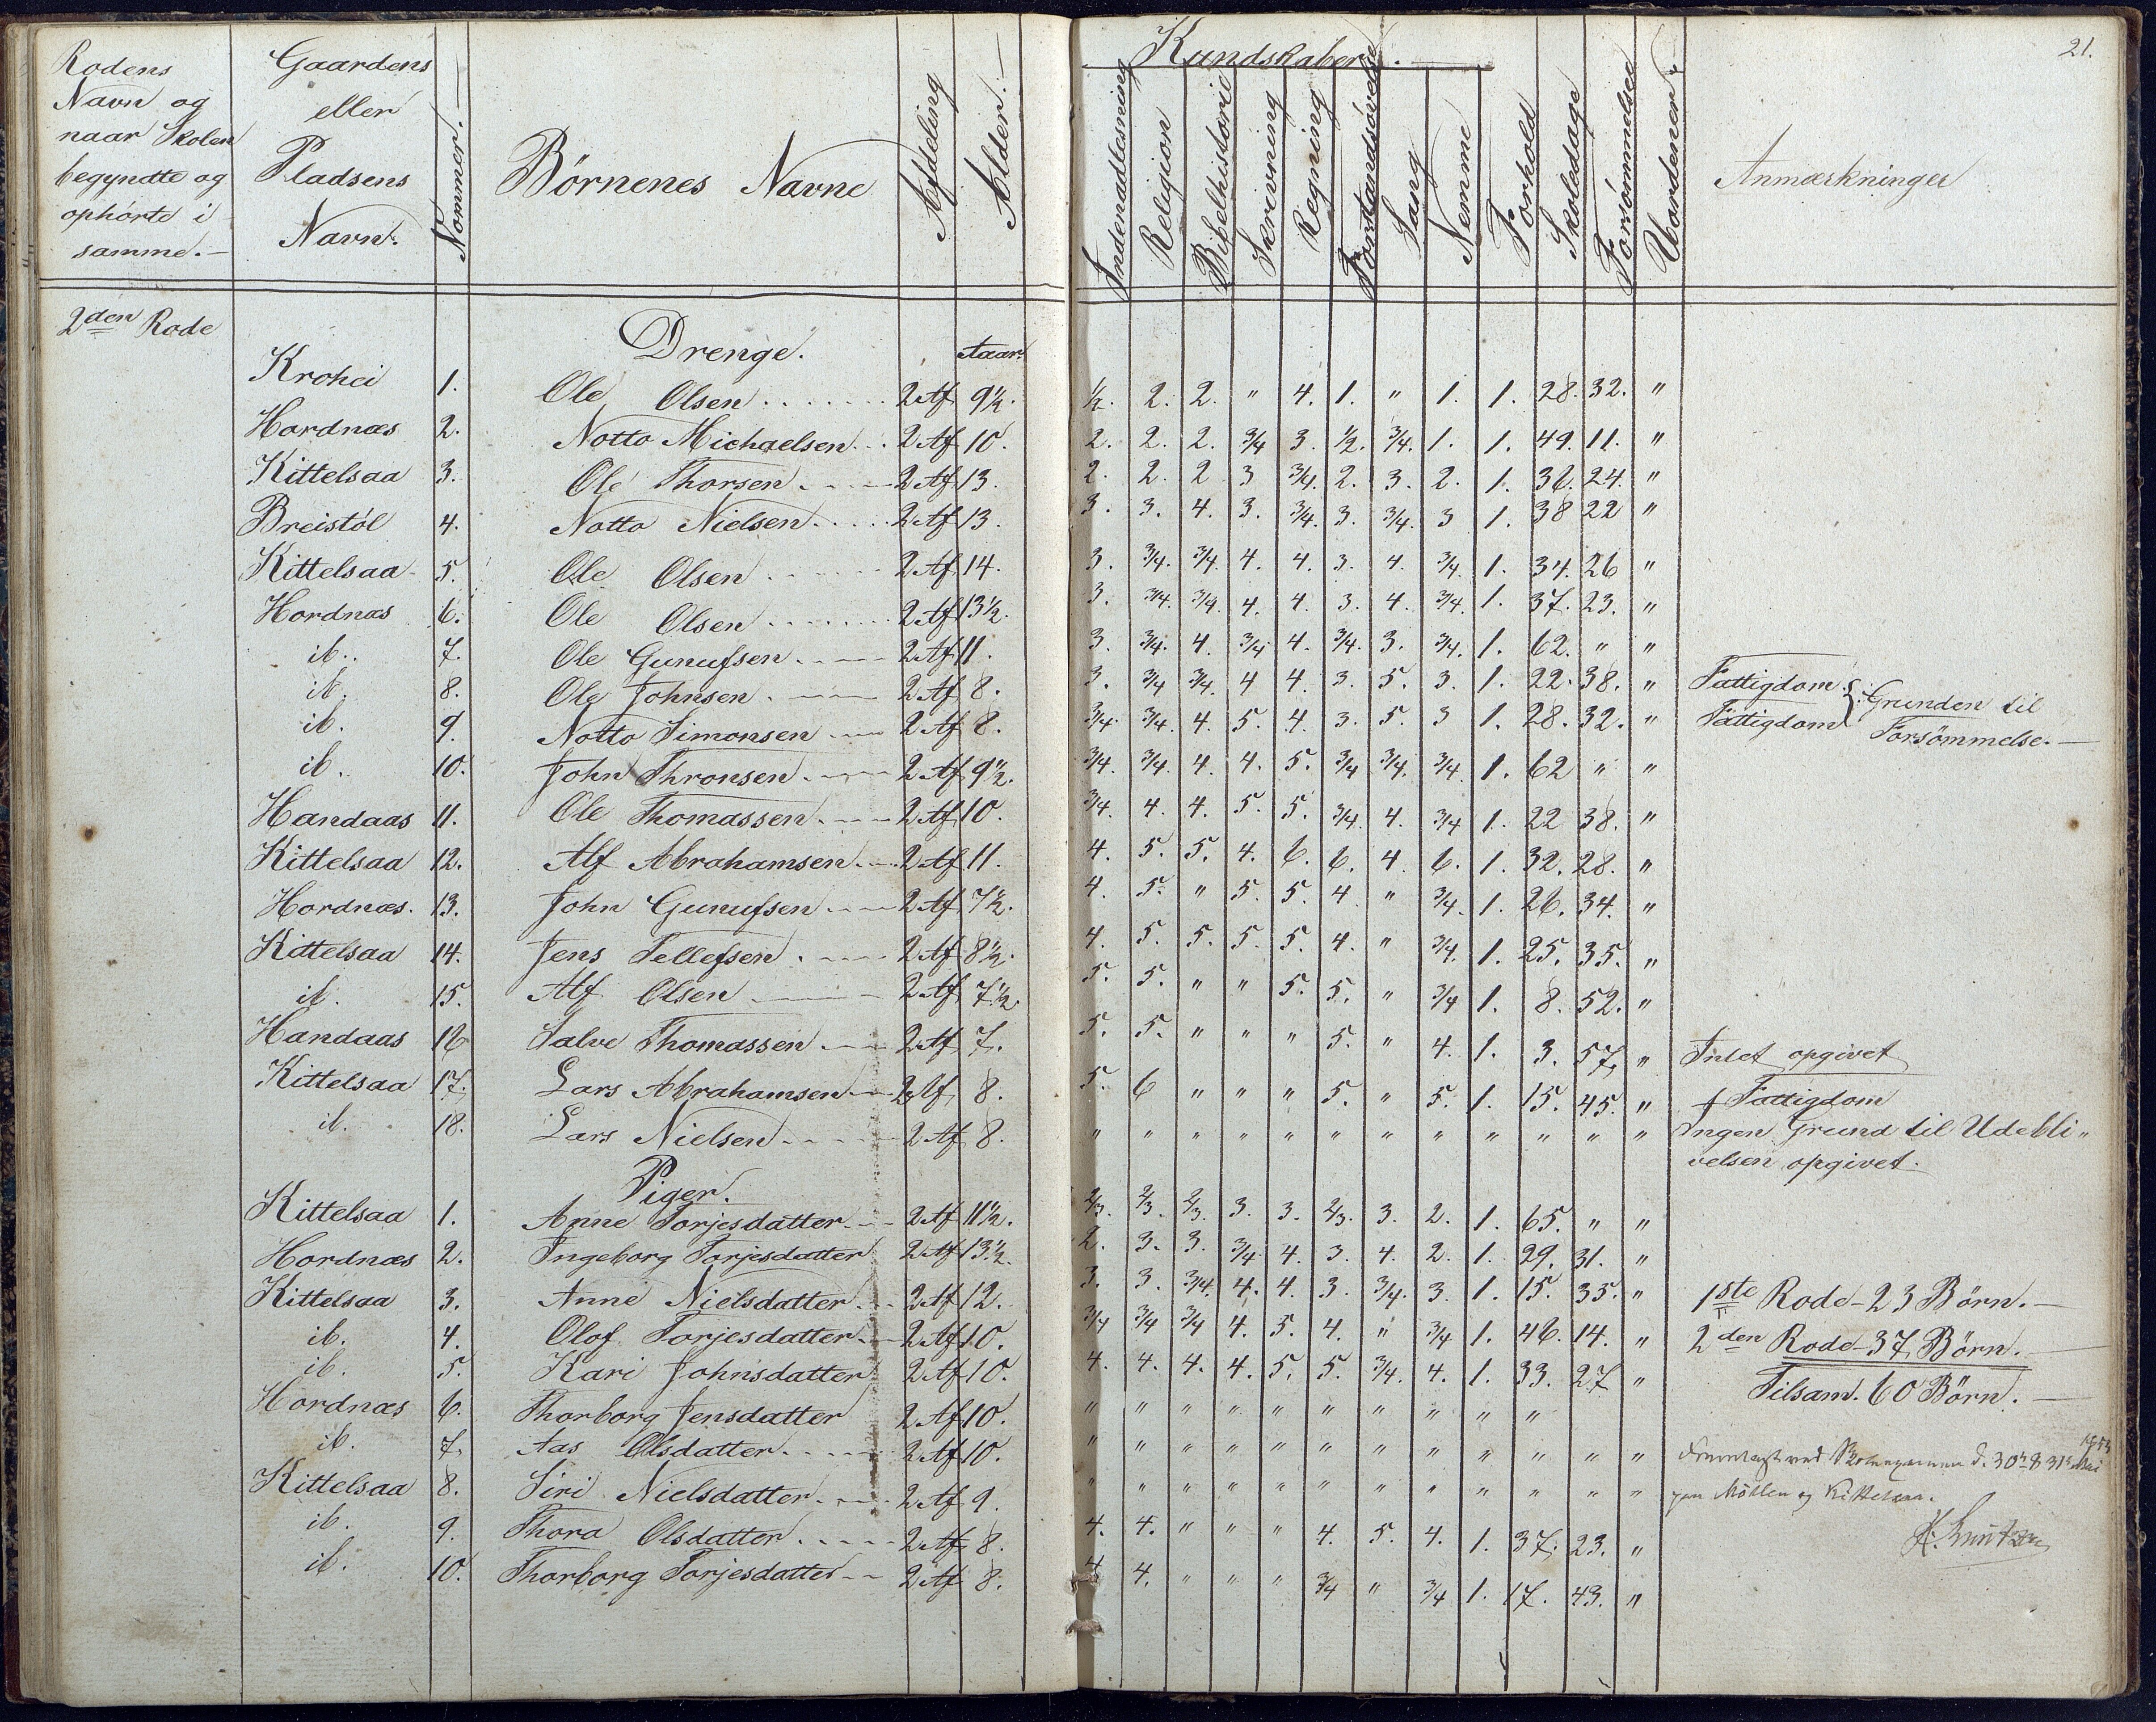 21.
Rodens Navn og naar Skolen begyndte og ophørte i samme.—
Gaardens eller Pladsens Navn.
Nommer.—
Børnenes Navne
Afdeling
Alder.—
Kundskaber.—
Indenadlesning
Religion
Bibelhistorie
Skrivning
Regning
Forstandsøvelse
Sang
Nemme
Forhold
Skoledage
Forsømmelser
Uordener.
Anmærkninger
2den Rode
Drenge. Aar.
Krohei 1. Ole Olsen . . . . . . . 2 Af 9½. ½. 2. 2. " 4. 1. " 1. 1. 28. 32. "
Hordnæs 2. Notto Michaelsen . . 2 Af 10. 2. 2. 2. ¾ 3. ½. ¾. 1. 1. 49. 11. "
Kittelsaa 3. Ole Thorsen . . — 2 Af 13. 2. 2. 2 3 ¾. 2. 3. 2. 1. 36. 24. "
Breistöl 4. Notto Nielsen . . . . 2 Af 13. 3. 3. 4. 3. ¾. 3. ¾. 3 1. 38 22 "
Kittelsaa 5. Ole Olsen . . . . . . 2 Af 14. 3. ¾. ¾. 4. 4. 3. 4. ¾. 1. 34. 26 "
Hordnæs 6. Ole Olsen . . . . . . . 2 Af 13½. 3. ¾. ¾. 4. 4. 3. 4. ¾. 1. 37. 23. "
ib. 7. Ole Gunufsen . . — 2 Af 11. 3. ¾. 4. ¾ 4. ¾. 3. ¾. 1. 62. " "
ib. 8. Ole Johnsen . — 2 Af 8. 3. ¾ ¾. 4 4. 3. 5. 3. 1. 22. 38. " Fattigdom } Grunden til
ib. 9. Notto Simonsen . — 2 Af 8. ¾. ¾. 4. 5. 4. 3. 5. 3 1. 28. 32. " Fattigdom } Forsömmelse.—
ib. 10. John Thronsen . — 2 Af 9½. ¾. ¾. 4. 4. 5. ¾ ¾. ¾ 1. 62 " "
Handaas 11. Ole Thomassen . — 2 Af 10. ¾. 4. 4. 5. 5. ¾. 4. ¾ 1. 22 38. "
Kittelsaa 12. Alf Abrahamsen . — 2 Af 11. 4. 5. 5. 4. 6. 6. 4 6. 1. 32. 28. "
Hordnæs. 13. John Gunufsen . — 2 Af 7½. 4. 5. " 5. 5. 4 " ¾. 1. 26. 34. "
Kittelsaa 14. Jens Tellefsen . — 2 Af 8½. 4. 5. 5. 5. 5. 4. " ¾ 1. 25. 35. "
ib. 15. Alf Olsen — 2 Af 7½. 5. 5. " " 5. 5. " ¾ 1. 8. 52. "
Handaas 16 Salve Thomassen . — 2 Af 7. 5. 5. " " " 5. " 4. 1. 3. 57. " Intet opgivet
Kittelsaa 17. Lars Abrahamsen — 2 Af 8. 5. 6 " " " 5. " 5. 1. 15. 45. " f Fattigdom
ib. 18. Lars Nielsen . . . 2 Af 8. " " " " " " " " " " " " Ingen Grund til Udebli"
velsen opgivet.
Piger.
Kittelsaa 1. Anne Torjesdatter . — 2 Af 11½. ⅔. ⅔. ⅔. 3. 3. ⅔. 3. 2. 1. 65. " "
Hordnæs 2. Ingeborg Torjesdatter 2 Af 13½. 2. 3. 3. ¾ 4. 3. 4. 2. 1. 29. 31. "
Kittelsaa 3. Anne Nielsdatter . . 2 Af 12. 3. 3. ¾. 4. 4. 3. ¾. 3. 1. 15. 35. " 1ste Rode — 23 Börn.—
ib. 4. Olof Torjesdatter . — 2 Af 10. ¾ ¾ ¾ 4. 5. 4. " ¾ 1. 46. 14. " 2den Rode — 37 Börn.—
ib. 5. Kari Johnsdatter 2 Af 10. 4. 4. 4. 4. 5. 5. ¾. 4. 1. 33. 27 " Tilsam. 60 Börn.—
Hordnæs 6. Thorborg Jensdatter 2 Af 10. " " " " " " " " " "
ib. 7. Aas Olsdatter . . . . 2 Af 10. " " " " " " " " " " " "
Kittelsaa 8. Siri Nielsdatter . — 2 Af 9. " " " " " " " " " " " "
ib. 9. Thora Olsdatter . . . . 2 Af 8. 4. 4. " " " 4. 5. 4. 1. 37. 23. "
ib. 10. Thorborg Torjesdatter — 2 Af 8. 4 4. " " " ¾ " ¾ 1. 17. 43. "
ved Skoleexamen d. 30te & 31te Mai
paa Möllen og Kittelsaa.